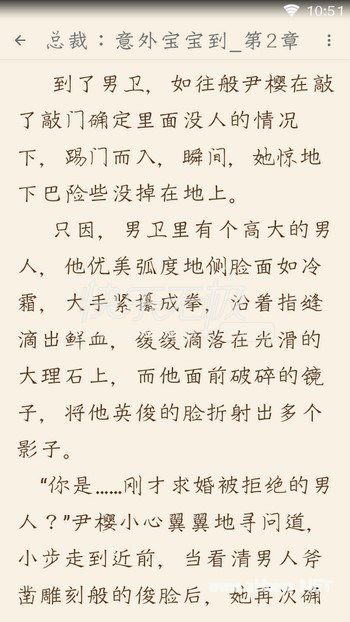 10:51
总裁：意外宝宝到_第2章
到了男卫，如往般尹樱在敲
了敲门确定里面没人的情况
下，踢门而入，瞬间，她惊地
下巴险些没掉在地上。
只因，男卫里有个高大的男
人，他优美弧度地侧脸面如冷
霜，大手紧攥成拳，沿着指缝
滴出鲜血，缓缓滴落在光滑的
大理石上，而他面前破碎的镜
子，将他英俊的脸折射出多个
影子。
“你是……刚才求婚被拒绝的男
人？”尹樱小心翼翼地寻问道，
小步走到近前，当看清男人斧
凿雕刻般的俊脸后，她再次确